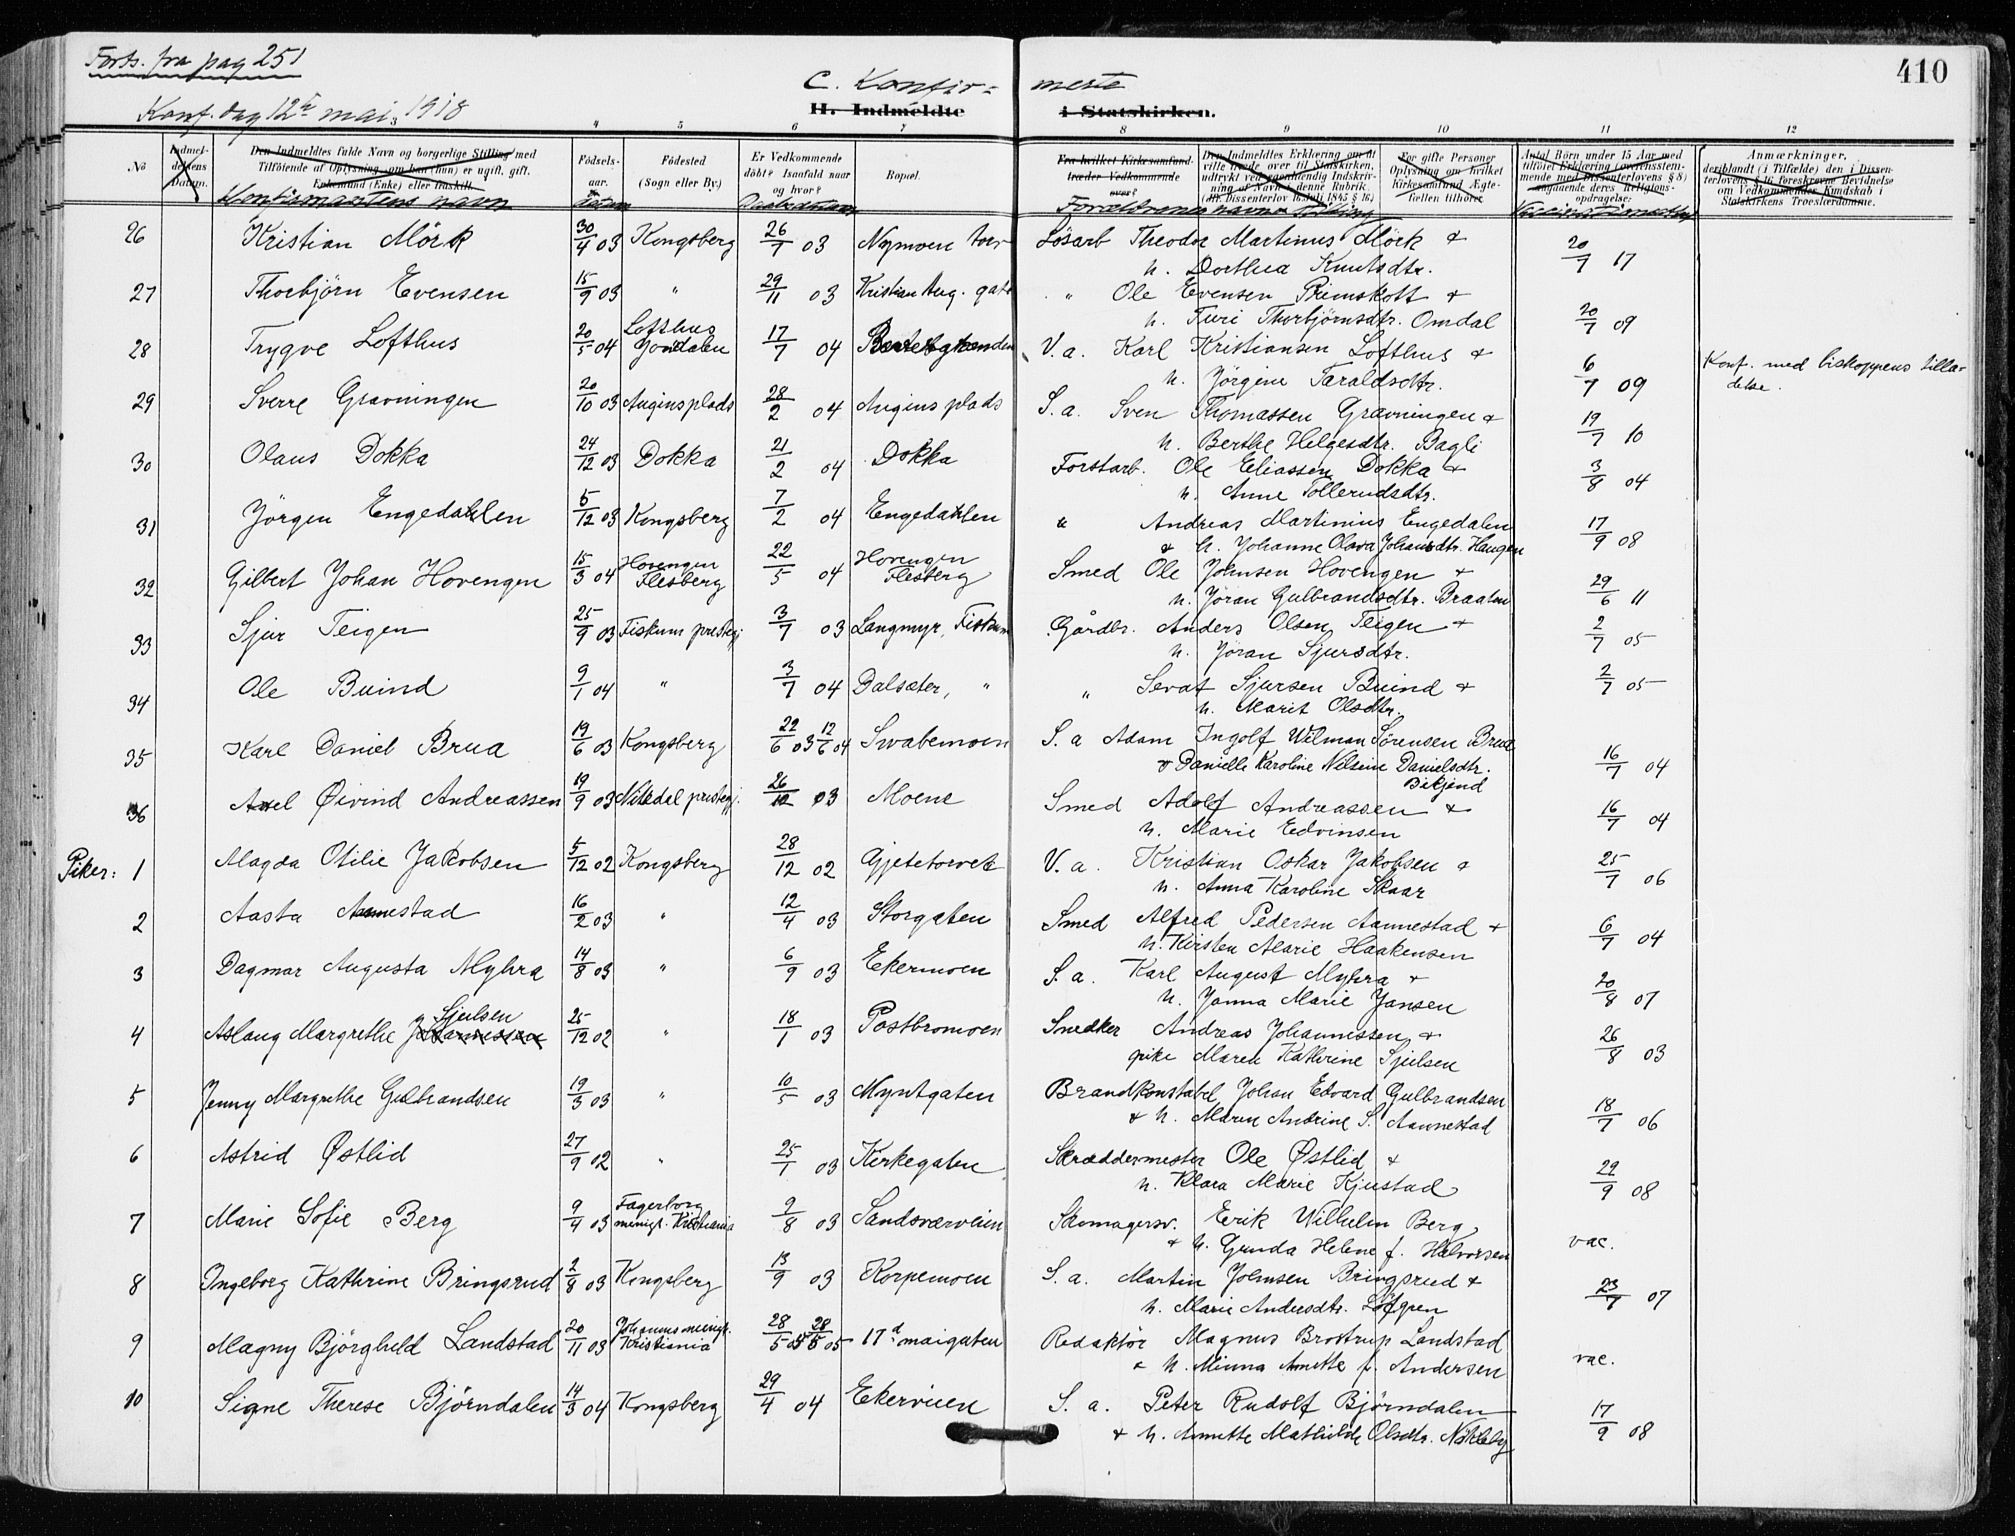 Forts. fra pag 251
410
C. Konfir- merte
Konf. dag 12te mai 1918
H. Indmeldte i Statskirken.
4 5 6 7 8 9 10 11 12
No
Indmeldelsens Datum.
Den Indmeldtes fulde Navn og borgerlige Stilling med Tilföiende af Oplysning, om han (hun) er ugift, gift, Enkemand (Enke) eller fraskilt.
Konfirmantens navn
Födselsaar. datum
Födested (Sogn eller By.)
Er Vedkommende döbt? Isaafald naar og hvor?
Daabsdatum
Bopæl.
Fra hvilket Kirkesamfund træder Vedkommende over?
Den Indmeldtes Erklæring om at ville træde over til Statskirken, udtrykt ved egenhændig Indskrivning af Navn i denne Rubrik (cfr. Dissenterlov 16 Juli 1845 § 16.)
For gifte Personer Oplysning om hvilket Kirkesamfund Ægtefællen tilhører.
Forældrenes navn og stilling
Antal Börn under 15 Aar med tilföiet Erklæring (overensstemmende med Dissenterlovens § 8) angaaende deres Religionsopdragelse:
Anmærkninger, deriblandt (i Tilfælde) den i Dissenterlovens § 16 foreskrevne Bevidnelse om Vedkommendes Kundskab i Statskirkens Troeslærdomme.
26 Kristian Mörk 30/4 03 Kongsberg 26/7 03 Nymoen torv Lösarb Theodor Martinus Mörk & 20/7 17
h. Dorthea Knutsdtr.
27 Thorbjörn Evensen 15/9 03 " 29/11 03 Kristian Aug. gate " Ole Evensen Primskott & 20/7 09
h. Turi Thorbjörnsdtr. Omdal
28 Trygve Lofthus 20/5 04 Lofthus Jondalen 17/7 04 V. a. Karl Kristiansen Lofthus & 6/7 09 Konf. med biskoppens tilladelse.
h. Jörgine Taraldsdtr.
29 Sverre Gravningen 20/10 03 Augins plads 28/2 04 Augins plads S. a. Sven Thomassen Gravningen & 19/7 10
h. Berthe Helgesdtr. Bagli
30 Olaus Dokka 24/12 03 Dokka 21/2 04 Dokka Forstarb. Ole Eliassen Dokka & 3/8 04
h. Anne Tollerudsdtr.
31 Jörgen Engedahlen 5/12 03 Kongsberg 7/2 04 Engedahlen " Andreas Martinius Engedalen 17/9 08
& h. Johanne Olava Johansdtr. Haugen
32 Gilbert Johan Hovengen 15/3 04 Hovengen Flesberg 22/5 04 Hovengen Flesberg Smed Ole Johnsen Hovengen & 29/6 11
h. Jöran Gulbrandsdtr. Braaten
33 Sjur Teigen 25/9 03 Fiskum prestegj 3/7 03 Langmyr, Fiskum Gårdbr. Anders Olsen Teigen & 2/7 05
h. Jöran Sjursdtr.
34 Ole Buind 9/1 04 " 3/7 04 Dalsæter, " " Sevat Sjursen Buind & 2/7 05
h. Marit Olsdtr.
35 Karl Daniel Brua 19/6 03 Kongsberg 22/6 03 12/6 04 Svabemoen S. a Adam Ingolf Wilman Sörensen Brua 16/7 04
& Danielle Karoline Nilsine Danielsdtr. Bikjend
36 Axel Øivind Andreassen 19/9 03 Nitedal prestegj. 26/12 03 Moene Smed Adolf Andreassen & 16/7 04
h. Marie Edvinsen
Piker: 1 Magda Otilie Jakobsen 5/12 02 Kongsberg 28/12 02 Gjetetorvet V. a. Kristian Oskar Jakobsen & 25/7 06
h. Anna Karoline Skaar
2 Aasta Aannestad 16/2 03 " 12/4 03 Storgaten Smed Alfred Pedersen Aannestad & 6/7 04
h. Kirsten Marie Haakensen
3 Dagmar Augusta Myhra 14/8 03 " 6/9 03 Ekermoen S. a. Karl August Myhra & 20/8 07
h. Janna Marie Jansen
4 Aslaug Margrethe Johannessen Sjulsen 25/12 02 " 18/1 03 Postbromoen Snedker Andreas Johannessen & 26/8 03
pike Maren Kathrine Sjulsen
5 Jenny Margrethe Gulbrandsen 19/3 03 " 10/5 03 Myntgaten Brandkonstabel Johan Edvard Gulbrandsen 18/7 06
& h. Maren Andrine S. Aannestad
6 Astrid Østlid 27/9 02 " 25/1 03 Kirkegaten Skræddermester Ole Østlid & 29/9 08
h. Klara Marie Kjustad
7 Marie Sofie Berg 9/4 03 Fagerborg menigh. Kristiania 9/8 03 Sandsværveien Skomagersv. Erik Wilhelm Berg vac.
& h. Gunda Helene f. Halvorsen
8 Ingeborg Kathrine Bringsrud 2/8 03 Kongsberg 13/9 03 Korpemoen S. a. Martin Johnsen Bringsrud & 23/7 07
h. Marie Andersdtr. Löfgren
9 Magny Björghild Landstad 20/11 03 Johannes menigh. Kristiania 28/5 05 17d maigaten Redaktör Magnus Brostrup Landstad vac.
& h. Minna Annette f. Andersen
10 Signe Therese Björndalen 14/3 04 Kongsberg 29/4 04 Ekerveien S. a. Peter Rudolf Björndalen 17/9 08
& h. Annette Mathilde Olsdtr. Nökleby